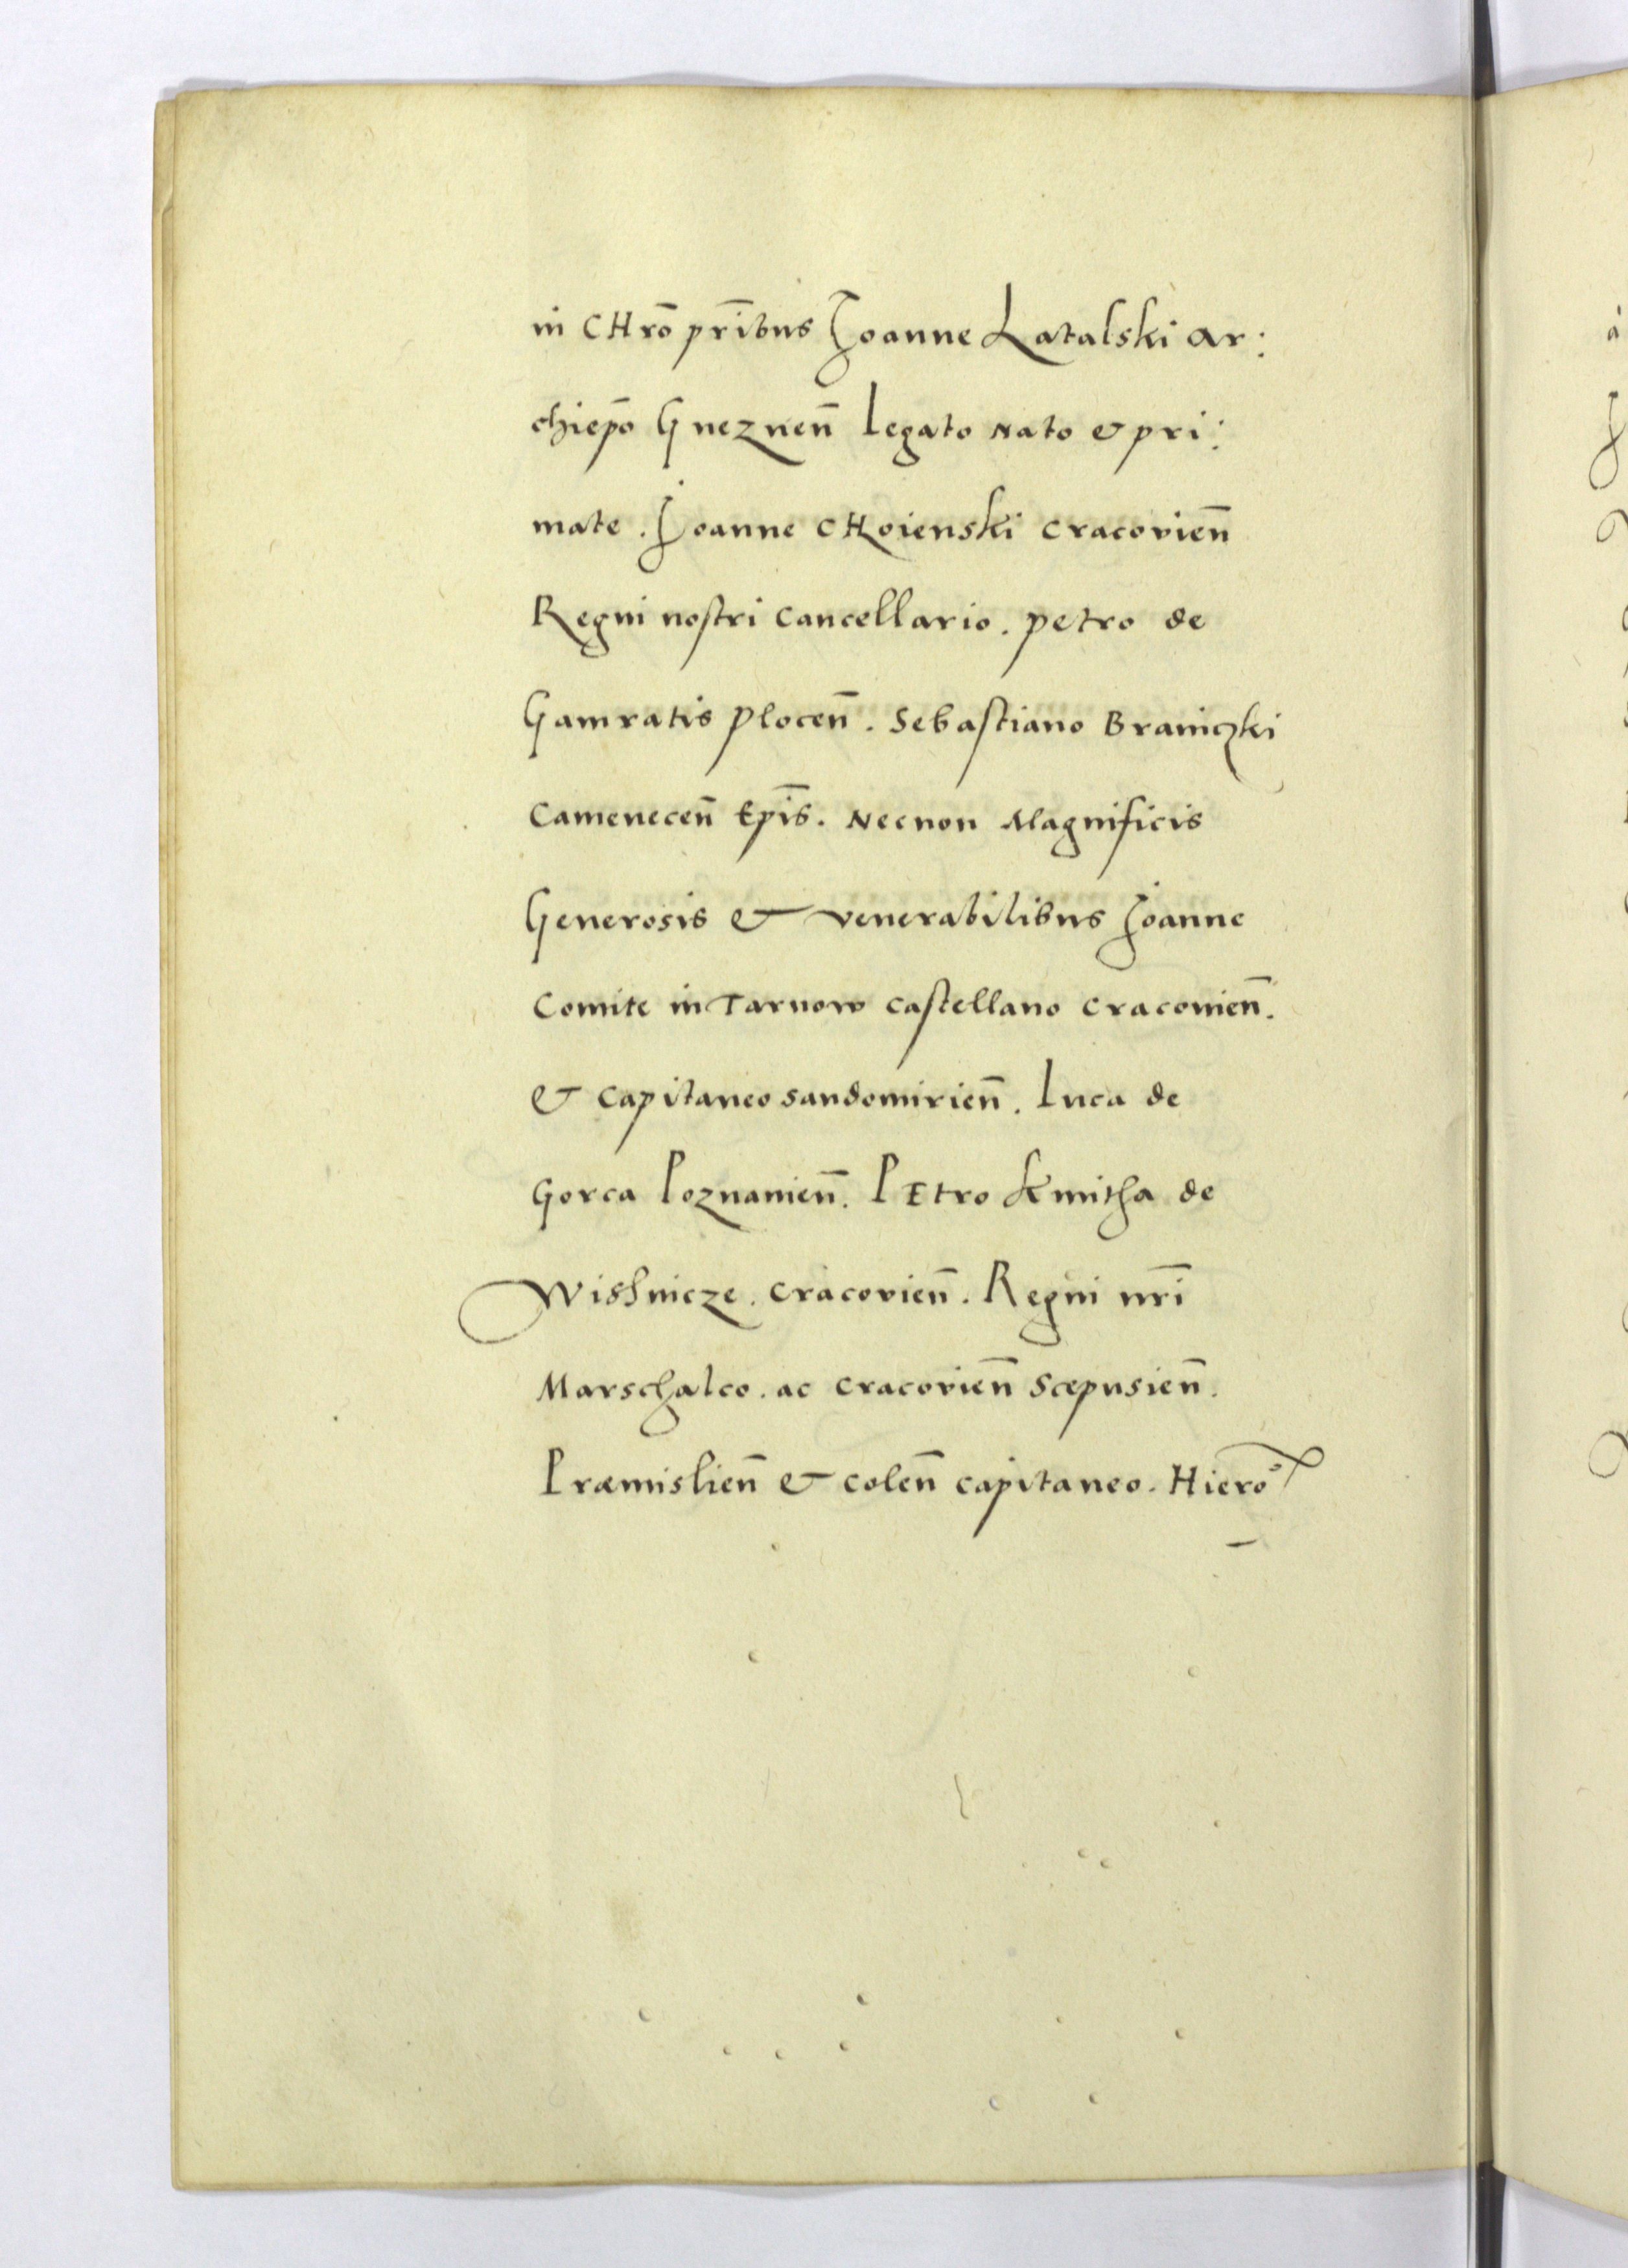 in CHrō pr̄ibus Joanne Latalski Ar:
chiep̄o Gneznen̄ Legato Nato & pri:
mate. Joanne CHoienski Cracovien̄
Regni nostri Cancellario. Petro de
Gamratis Plocen̄. Sebastiano Braniczki
Camenecen̄ Ep̄is. Necnon Magnificis
Generosis & venerabilibus Joanne
Comite in Tarnow Castellano Cracovien̄.
& Capitaneo Sandomirien̄. Luca de
Gorca Poznanien̄. PEtro Kmitha de
Wishnicze. Cracovien̄. Regni nr̄i
Marschalco. ac Cracovien̄ Scepusien̄.
Præmislien̄ & Colen̄ Capitaneo. Hiero